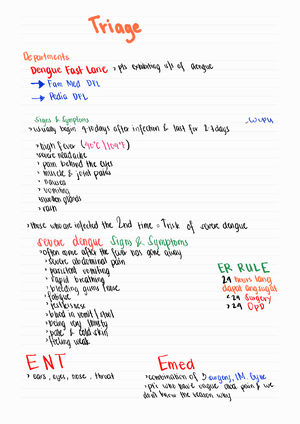 Triage
Departments
Dengue Fast Lane > pts exhibiting s/s of dengue
→ Fam Med DFL
→ Pedia DFL
Signs & Symptoms
> usually begin 4-10 days after infection & last for 2-7 days
> high fever (40°C / 104°F)
> severe headache
> pain behind the eyes
> muscle & joint pains
> nausea
> vomiting
> swollen glands
> rash
> those who are infected the 2nd time = ↑ risk of severe dengue
severe dengue Signs & Symptoms
> often come after the fever has gone away
> severe abdominal pain
> persistent vomiting
> rapid breathing
> bleeding gums / nose
> fatigue
> restlessness
> blood in vomit / stool
> being very thirsty
> pale & cold skin
> feeling weak
ER RULE
24 hours lang
dapat ang
< 24 surgery
> 24 OPD
ENT
> ears, eyes, nose, throat
Emed
> combination of 3 surgery, IM, Gyne
> pts who have vague area pain & we
don't know the reason why